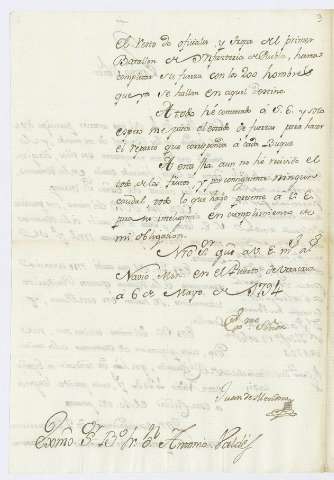 El resto de oficiales y tropa del primer
Batallon de Infanteria de Puebla, hasta
completar su fuerza con los 200 hombres
que ya se hallan en aquel destino.
A todo hé contextado à S. E. y solo
espero me pase el estado de fuerza para hacer
el reparto que corresponda à cada Buque
A esta fha aun no he recivido el
todo de los frutos y por consiguiente ningun
caudal, todo lo que hago presente a V. E.
para su inteligencia en cumplimiento de
mi obligacion.
Nro Sr. gue a V. E. ms. as.
Navio en el Puerto de Veracruz
à 6 de Mayo de 1794
Exmo Señor
Juan de Mendoza
Exmo Sr. Bo. Fr. Dn. Antonio Valdés